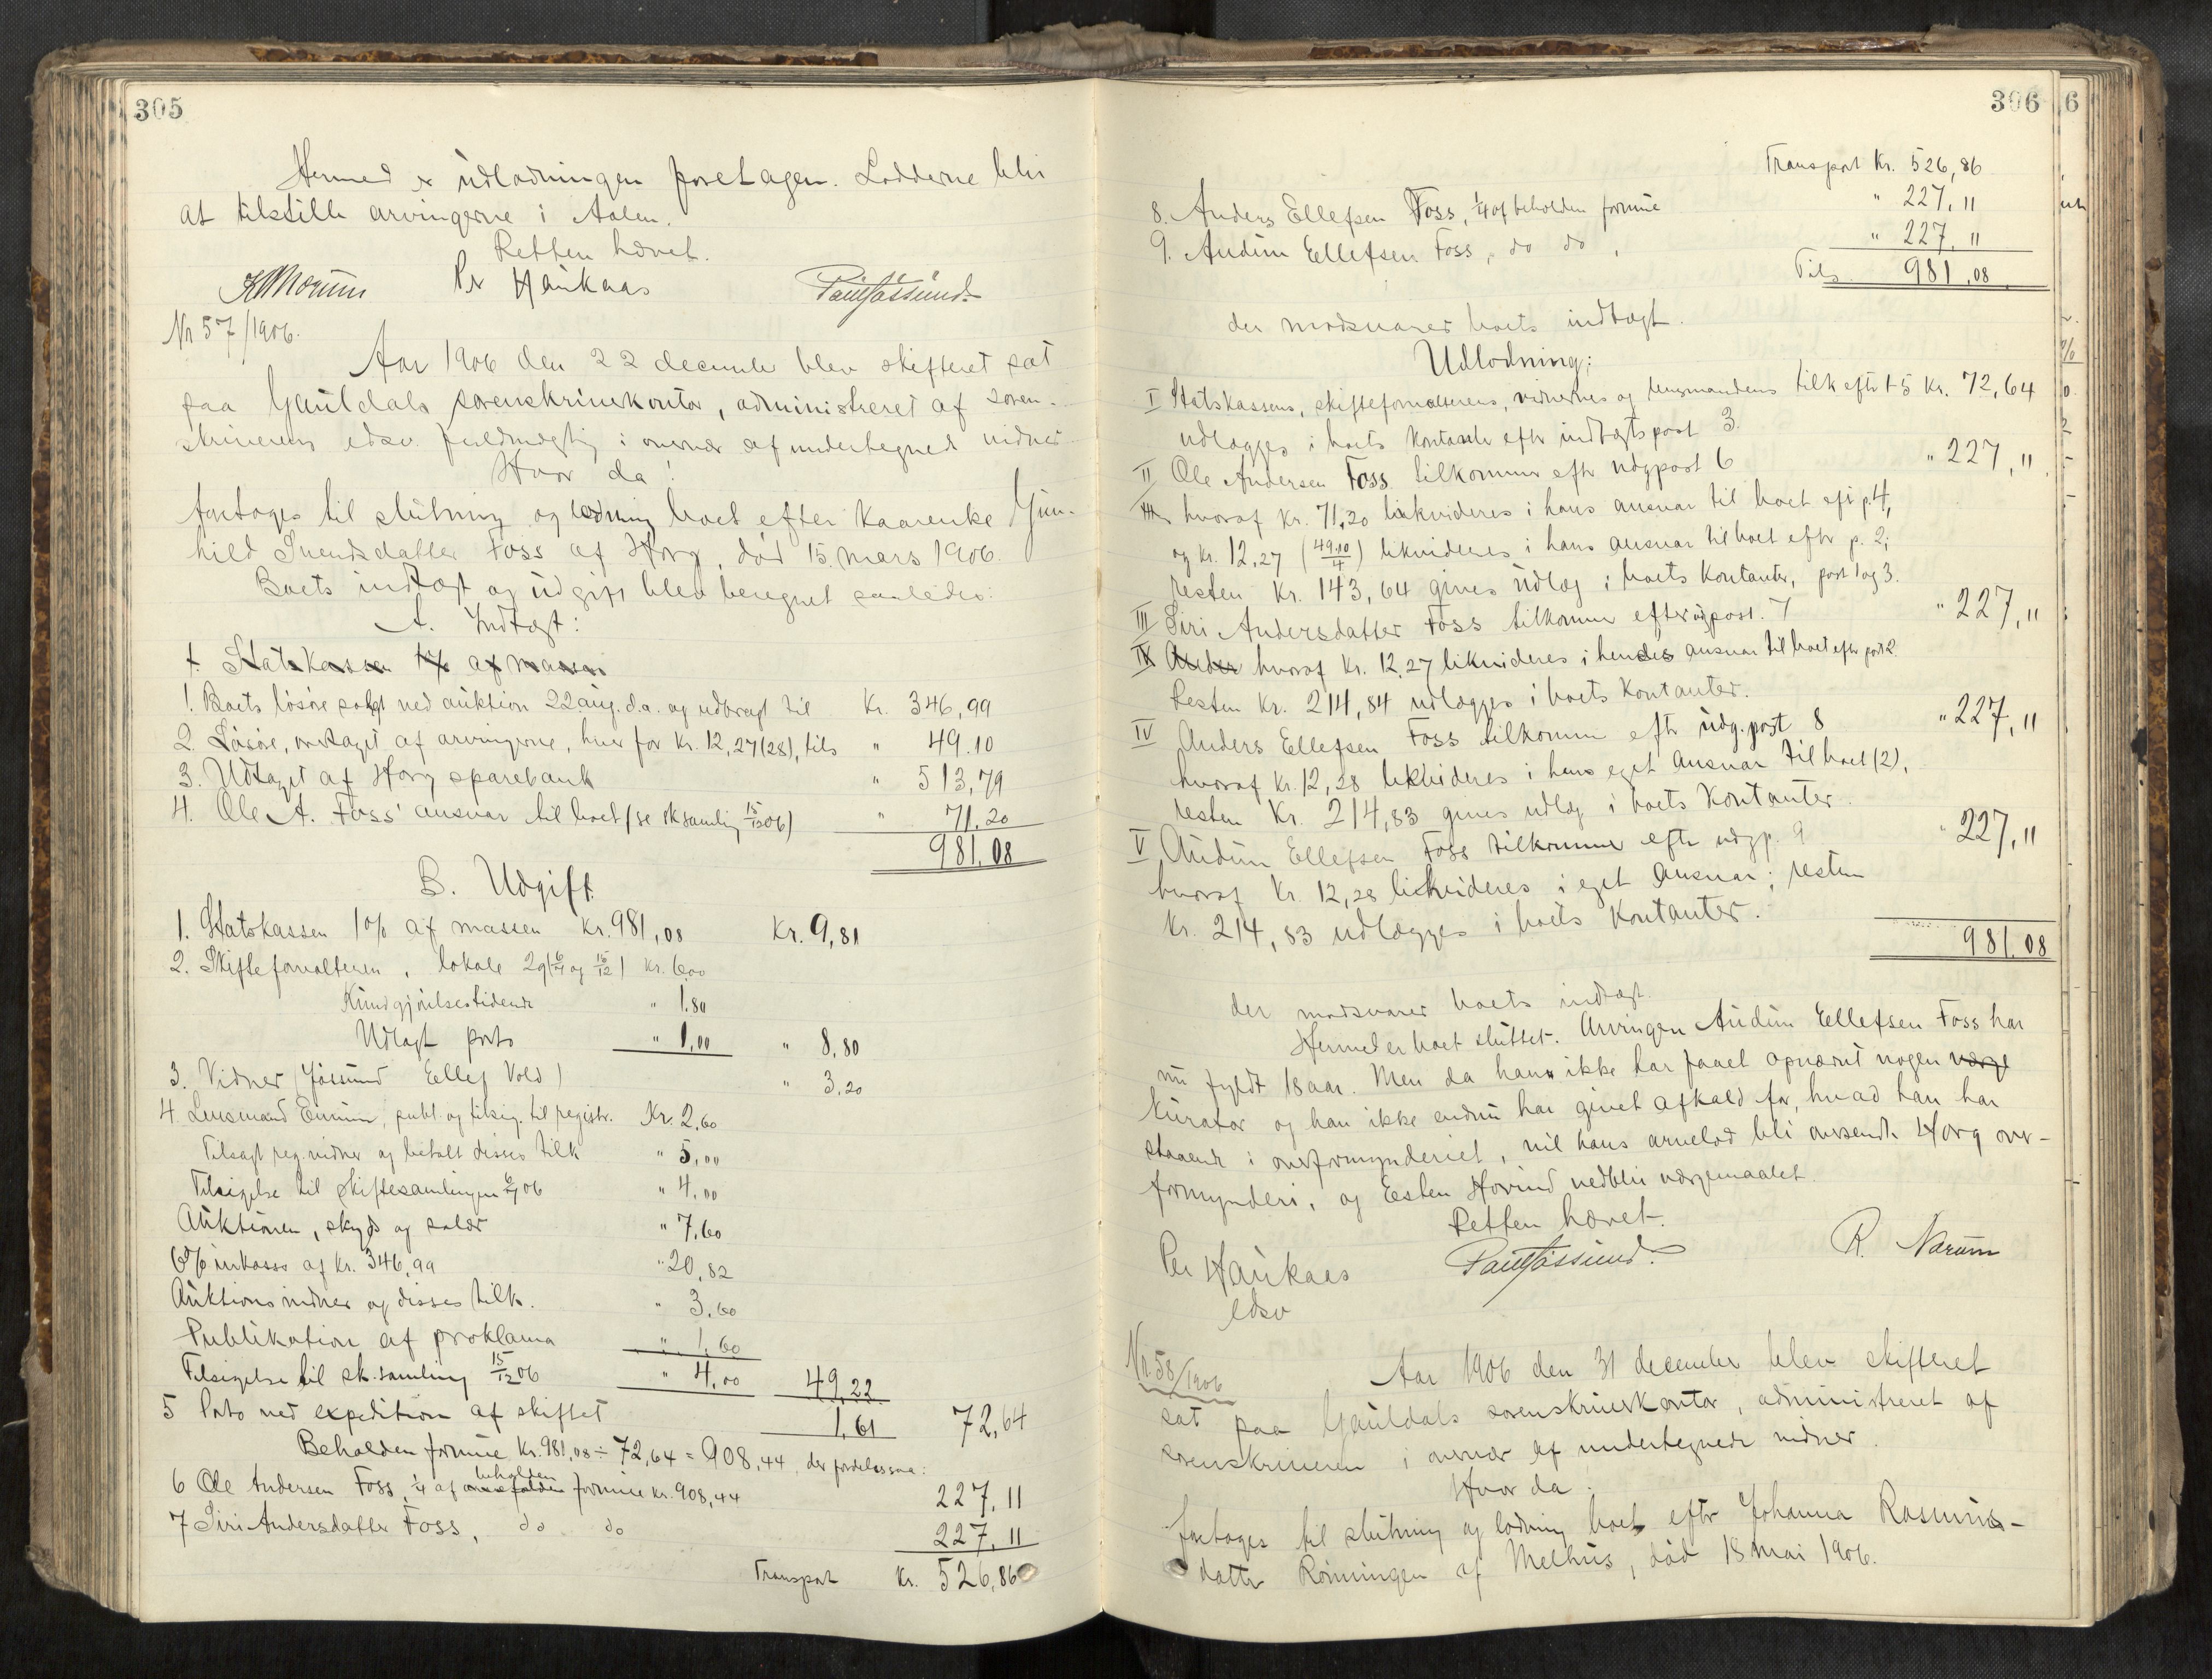 305
Hermed er udlodningen foretagen. Lodderne blir
at tilstille arvingerne i Aalen.
Retten hævet.
Per Haukaas Paul Jøssund
Nr 57/1906.
Aar 1906 den 22 december blev skifteret sat
paa Gauldals sorenskriverkontor, administreret af soren-
skriverens edsv. fuldmægtig i overvær af undertegnede vidner.
Hvor da!
foretoges til slutning og lodning boet efter kaarenke Gun-
hild Svendsdatter Foss af Horg, død 15 mars 1906.
Boets indtægt og udgift blev beregnet saaledes:
A. Indtægt:
1. Statskassen 1% af massen
1. Boets løsøre solgt ved auktion 22 aug. d.a. og udbragt til Kr. 346,99
2. Løsøre, overtaget af arvingerne, hver for Kr. 12,27 (28), tils " 49.10
3. Udtaget af Horg sparebank " 513,79
4. Ole A. Foss' ansvar til boet (se sk.samling 15/12 06) " 71,20
981,08
B. Udgift
1. Statskassen 1% af massen Kr. 981,08 Kr. 9,81
2. Skifteforvalteren, lokale 2g (6/4 og 15/12) Kr. 6,00
Kundgjørelsestidende " 1.80
Udlagt porto " 1,00 " 8,80
3. Vidner (Jøssund Ellef Vold) " 3,20
4 Lensmand Enmum, publ. og tilsig. til registr. Kr. 2,60
Tilsagt reg.vidner og betalt disses tilk " 5,00
Tilsigelse til skiftesamlingen 6/4 06 " 4,00
Auktionen, skyds og salær " 7,60
6% inkasso af Kr. 346,99 " 20,82
Auktionsvidner og disses tilk. " 3,60
Publikation af proklama " 1,60
Tilsigelse til sk.samling 15/12 06 " 4,00 49,22
5 Porto ved expedition af skiftet 1,61 72,64
Beholden formue Kr. 981,08 ÷ 72,64 = 908,44, der fordeles saa:
6 Ole Andersen Foss, 1/4 af beholden formue kr. 908,44 227,11
7 Siri Andersdatter Foss, do do 227,11
Transport Kr. 526,86
306
Transport Kr. 526,86
8. Anders Ellefsen Foss, 1/4 af beholden formue " 227,11
9. Audun Ellefsen Foss, do do, " 227,11
Tils. 981,08
der modsvarer boets indtægt.
Udlodning:
I Statskassens, skifteforvalterens, vidnernes og lensmandens tilk efter 1-5 Kr. 72,64
udlægges i boets kontanter efter indtægtspost 3.
II Ole Andersen Foss tilkommer efter udgpost 6 " 227,11
hvoraf Kr. 71,20 likvideres i hans ansvar til boet eft p. 4,
og kr. 12,27 (49.10/4) likvideres i hans ansvar til boet efter p. 2;
resten Kr. 143,64 gives udlæg i boets kontanter, post 1 og 3.
III Siri Andersdatter Foss tilkommer efter udgpost. 7 " 227,11
IV Ander hvoraf Kr. 12,27 likvideres i hendes ansvar til boet efter post 2.
Resten Kr. 214,84 udlægges i boets kontanter.
IV Anders Ellefsen Foss tilkommer efter udg.post 8 " 227,11
hvoraf Kr. 12,28 likvideres i hans eget ansvar til boet (2),
resten Kr. 214,83 gives udlæg i boets kontanter.
V Audun Ellefsen Foss tilkommer efter udgp. 9 " 227,11
hvoraf Kr. 12,28 likvideres i eget ansvar; resten
Kr. 214,83 udlægges i boets kontanter.
981,08
der modsvarer boets indtægt.
Hermed er boet sluttet. Arvingen Audun Ellefsen Foss har
nu fyldt 18 aar. Men da han ikke har faaet opnævnt nogen værge
kurator og han ikke endnu har givet afkald for, hvad han har
staaende i overformynderiet, vil hans arvelod bli oversendt Horg over-
formynderi, og Esten Hovind vedblir værgemaalet.
Retten hævet.
Per Haukaas Paul Jøssund. R. Narum
edsv
Nr. 58/1906
Aar 1906 den 31 december blev skifteret
sat paa Gauldals sorenskriverkontor, administreret af
sorenskriveren i overvær af undertegnede vidner.
Hvor da:
foretoges til slutning og lodning boet efter Johanna Rasmus-
datter Rønningen af Melhus, død 18 mai 1906.